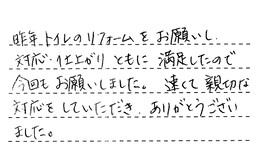 昨年トイレのリフォームをお願いし.
対応・仕上がりともに満足したので
今回もお願いしました。速くて親切な
対応をしていただき、ありがとうござい
ました。